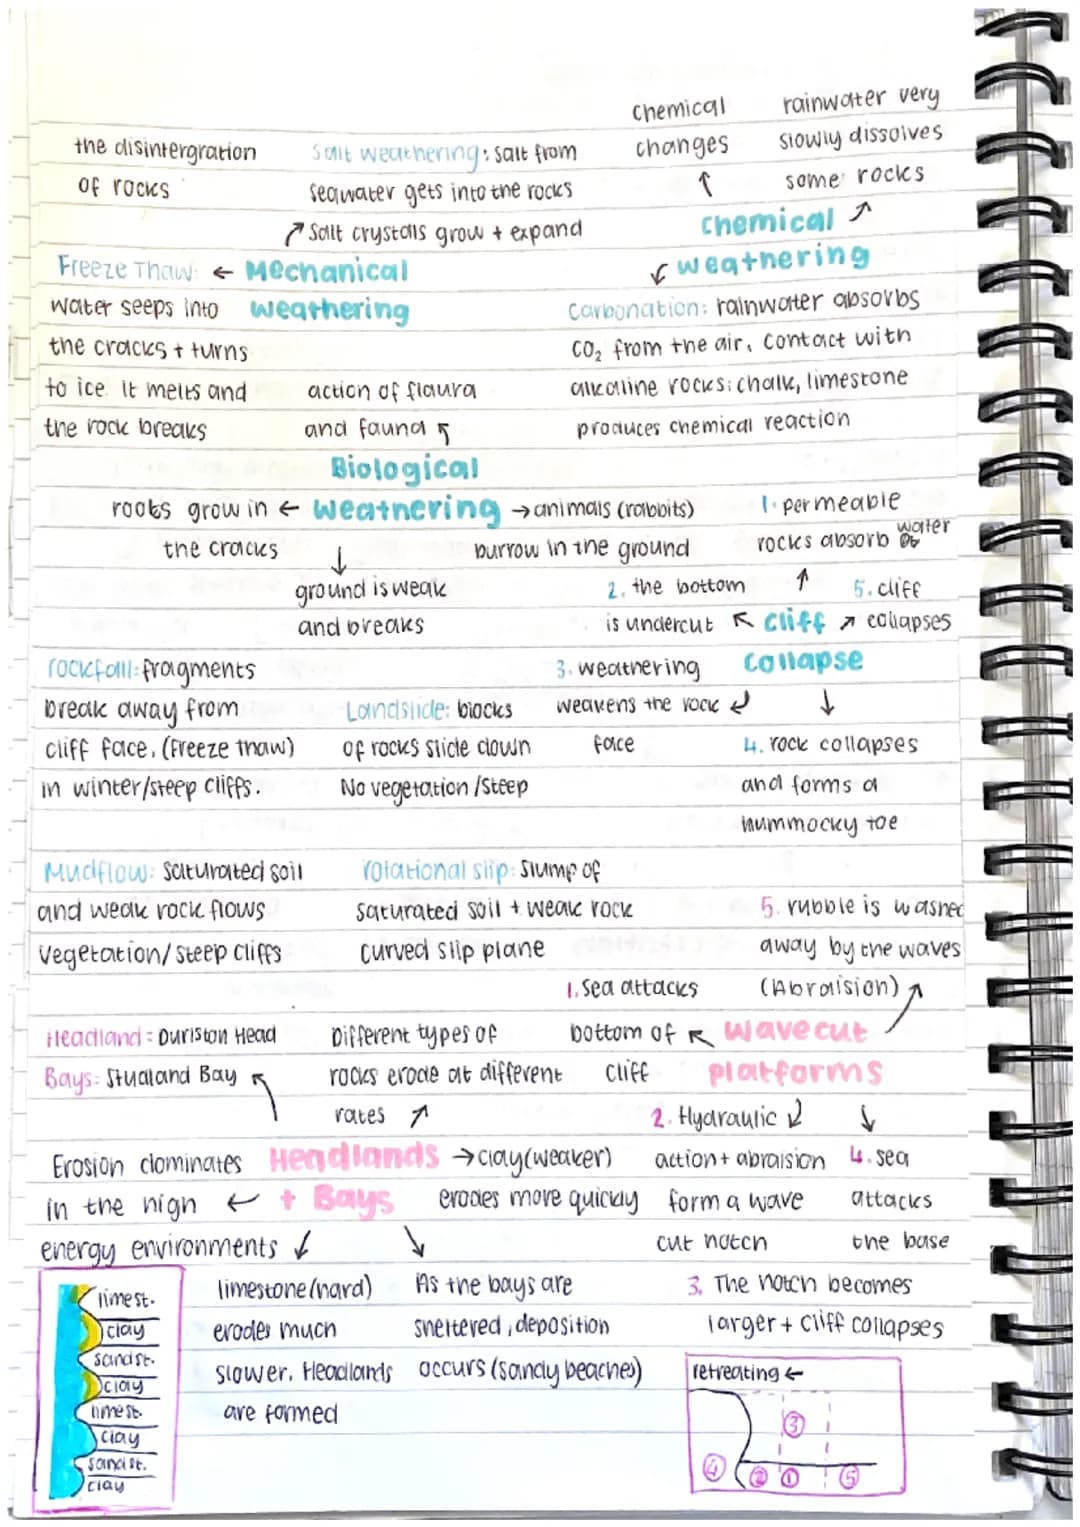 the disintergration
of rocks
Salt weathering: salt from
seawater gets into the rocks
↗ Salt crystals grow + expand
chemical
changes
↑
rainwater very
slowly dissolves
some rocks
↗
Chemical
weathering
Freeze Thaw: ← Mechanical
weathering
water seeps into
the cracks + turns
to ice. It melts and
the rock breaks
↙
Carbonation: rainwater absorbs
CO₂ from the air, contact with
alkaline rocks: chalk, limestone
produces chemical reaction
action of flaura
and fauna ↖
Biological
weathering
roots grow in ←
the cracks
→ animals (rabbits)
burrow in the ground
↓
ground is weak
and breaks
1. permeable
rocks absorb water
↑
2. the bottom
is undercut ↖
Cliff
Collapse
↗ 5. cliff
collapses
3. weathering
weakens the rock ↙
face
↓
4. rock collapses
and forms a
hummocky toe
rockfall: fragments
break away from
cliff face. (freeze thaw)
in winter/steep cliffs.
Landslide: blocks
of rocks slide down
No vegetation/steep
Mudflow: saturated soil
and weak rock flows
vegetation/steep cliffs
rotational slip: slump of
saturated soil + weak rock
curved slip plane
5. rubble is washed
away by the waves
(Abraision) ↗
1. Sea attacks
bottom of ↖
cliff
wave cut
platforms
2. Hydraulic ↙
action + abraision
form a wave
cut notch
↓
4. sea
attacks
the base
3. The notch becomes
larger + cliff collapses
Headland: Durlston Head
Bays: Studland Bay ↖
Different types of
rocks erode at different
rates ↗
Headlands
+ Bays
→ clay (weaker)
erodes more quickly
Erosion dominates
in the high ←
energy environments
↙
limestone (hard)
erodes much
slower. Headlands
are formed
↘
As the bays are
sheltered, deposition
occurs (sandy beaches)
limest.
clay
sandst.
clay
limest.
clay
sandst.
clay
retreating ←
③
④ ② ① ⑤